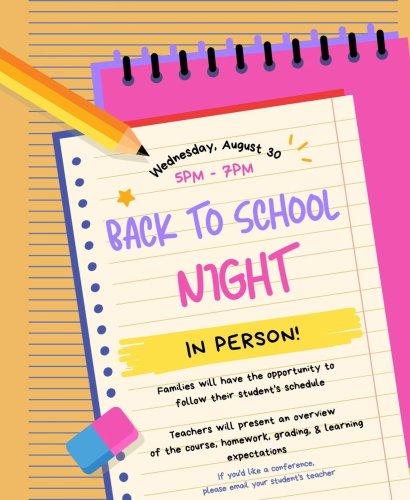 Wednesday, August 30
5PM - 7PM
BACK TO SCHOOL
NIGHT
IN PERSON!
Families will have the opportunity to
follow their student's schedule
Teachers will present an overview
of the course, homework, grading, & learning
expectations
If you'd like a conference,
please email your student's teacher